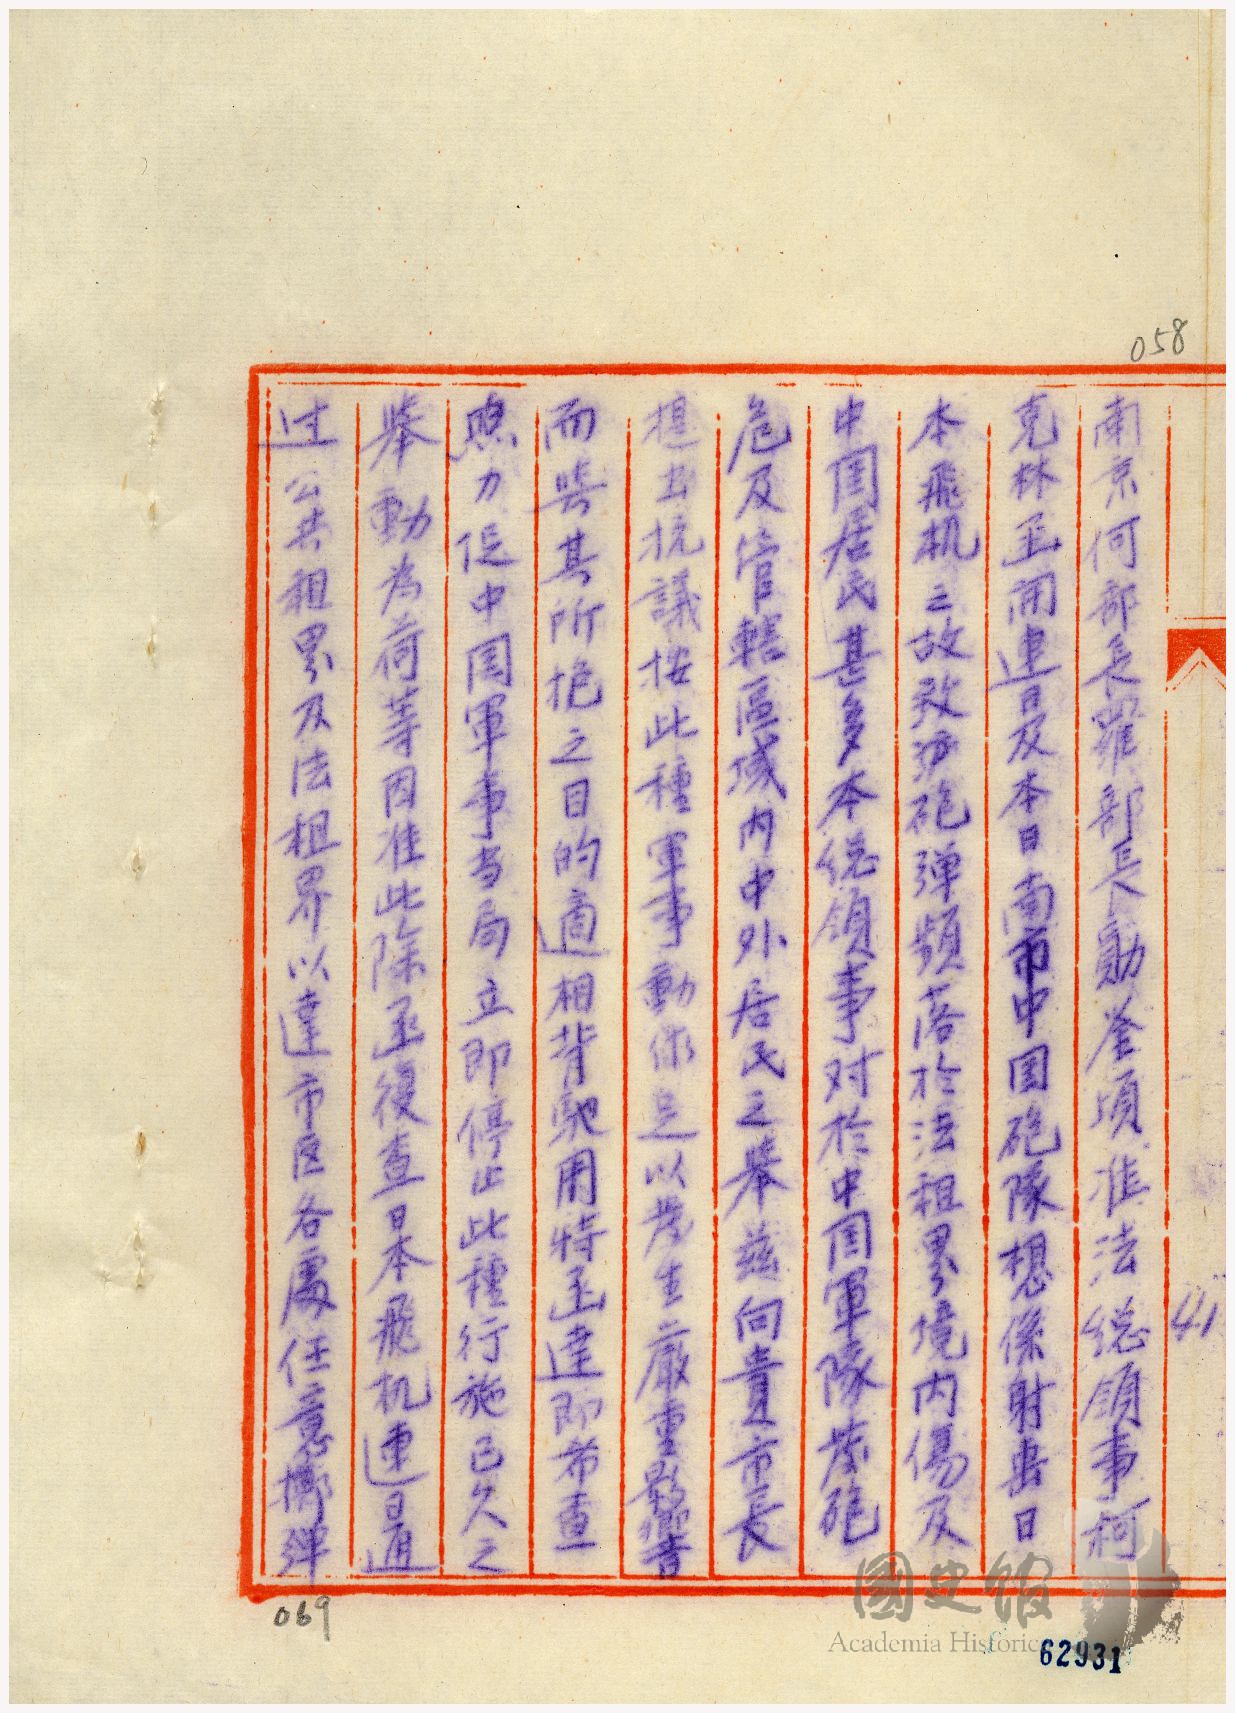 058
南京何部長羅部長勛鉴頃准法総領事柯
克林函開連日及本日南市中国砲隊想係射击日
本飛机之故致沙砲弹頻落於法租界境内傷及
中国居民甚多本総領事对於中国軍隊發砲
危及管轄區域内中外居民之舉兹向貴市長
提出抗議按此種軍事動作足以發生嚴重影響
而與其所抱之目的適相背馳用特函達即希查
照力促中国軍事当局立即停止此種行施已久之
舉動為荷等因准此除函復查日本飛机連日通
过公共租界及法租界以達市区各處任意擲弹
41
069
國史館
Academia Historica
62931